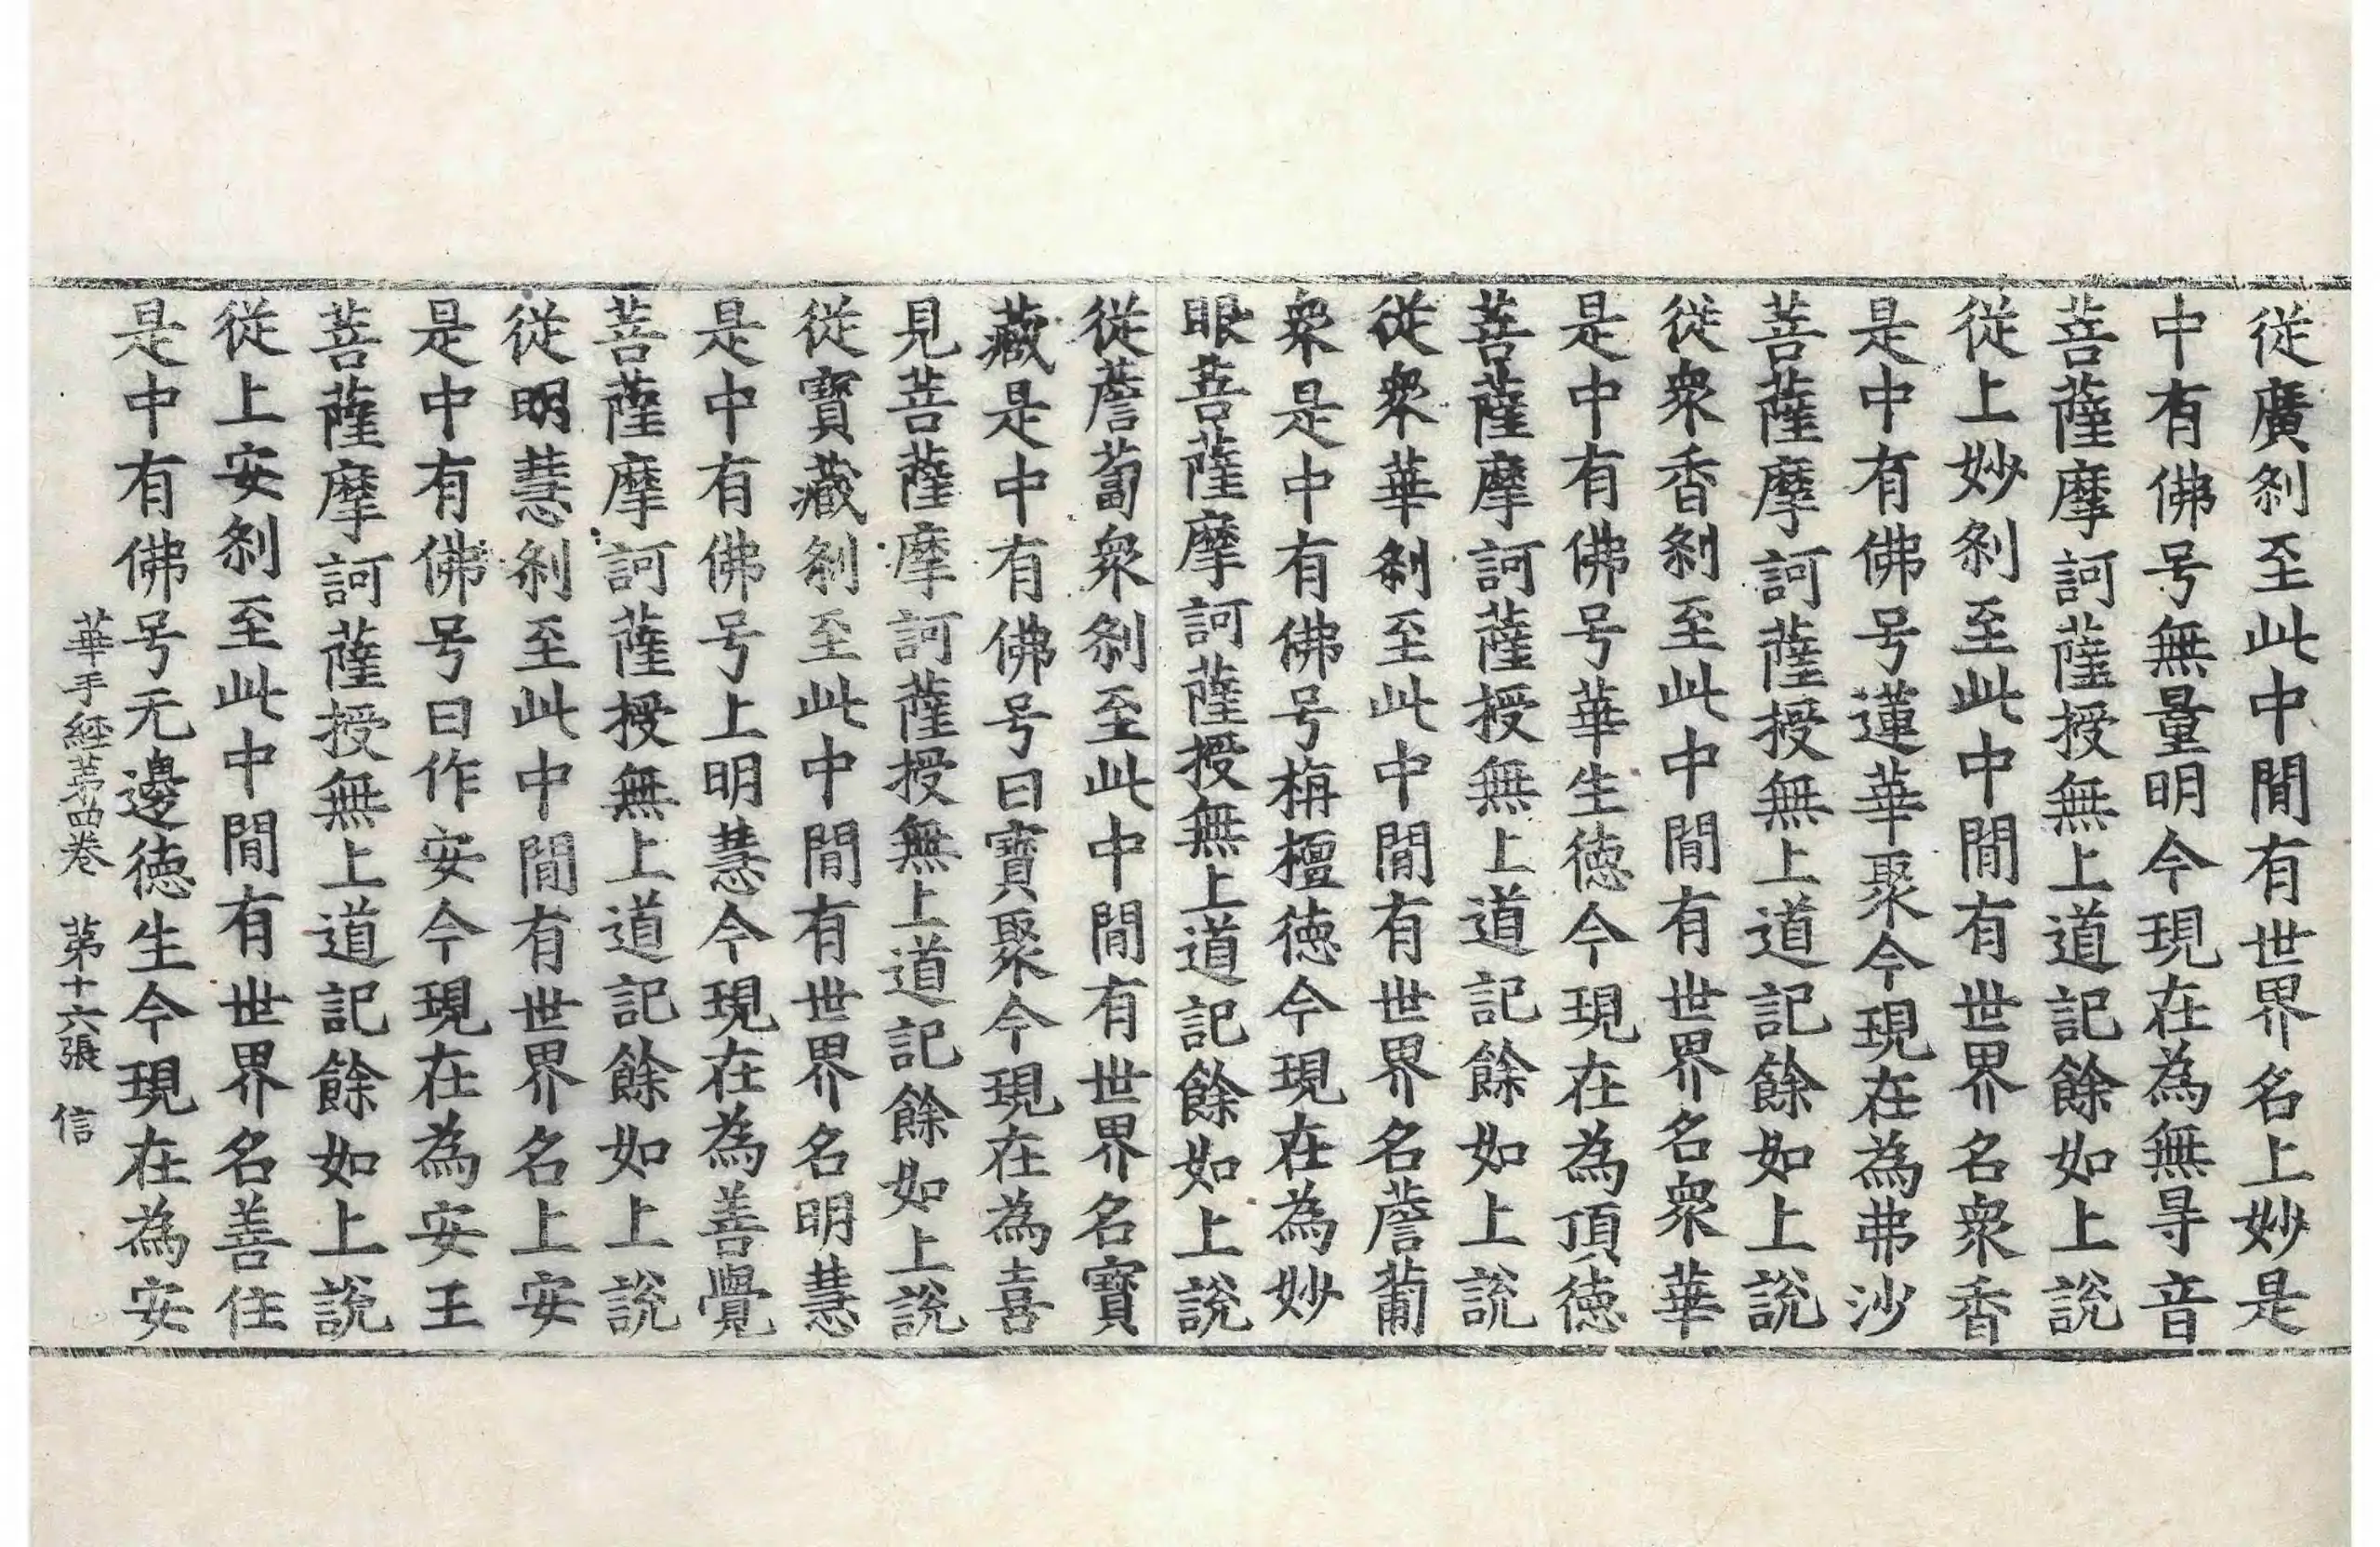 從廣刹至此中閒有世界名上妙是
中有佛号無量明今現在為無㝵音
菩薩摩訶薩授無上道記餘如上說
從上妙刹至此中閒有世界名眾香
是中有佛号蓮華聚今現在為弗沙
菩薩摩訶薩授無上道記餘如上說
從眾香刹至此中閒有世界名眾華
是中有佛号華生徳今現在為頂徳
菩薩摩訶薩授無上道記餘如上說
從眾華刹至此中閒有世界名薝蔔
眾是中有佛号栴檀徳今現在為妙
眼菩薩摩訶薩授無上道記餘如上說
從薝蔔眾刹至此中閒有世界名寶
藏是中有佛号曰寶聚今現在為喜
見菩薩摩訶薩授無上道記餘如上說
從寶藏刹至此中閒有世界名明慧
是中有佛号上明慧今現在為善覺
菩薩摩訶薩授無上道記餘如上說
從明慧刹至此中閒有世界名上安
是中有佛号曰作安今現在為安王
菩薩摩訶薩授無上道記餘如上說
從上安刹至此中閒有世界名善住
是中有佛号无邊徳生今現在為安
華手經第四卷 第十六張 信